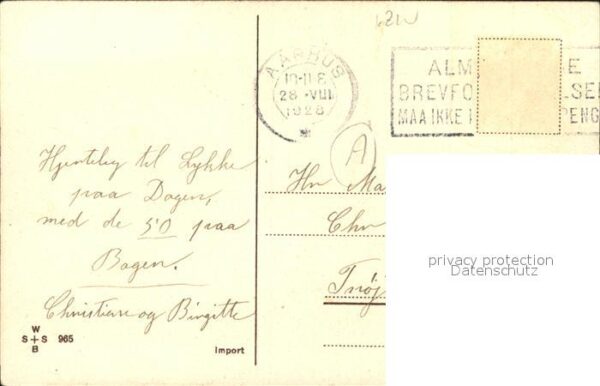 62W
AARHUS
10-11 F
28 -VIII
1928
ALM E
BREVFO LSE
MAA IKKE I PENG
A
Hjertelig til Lykke
paa Dagen,
med de 50 paa
Bagen.
Christian og Birgitte
Hr Ma
Chr
privacy protection
Datenschutz
W
S+S 965
B
Import